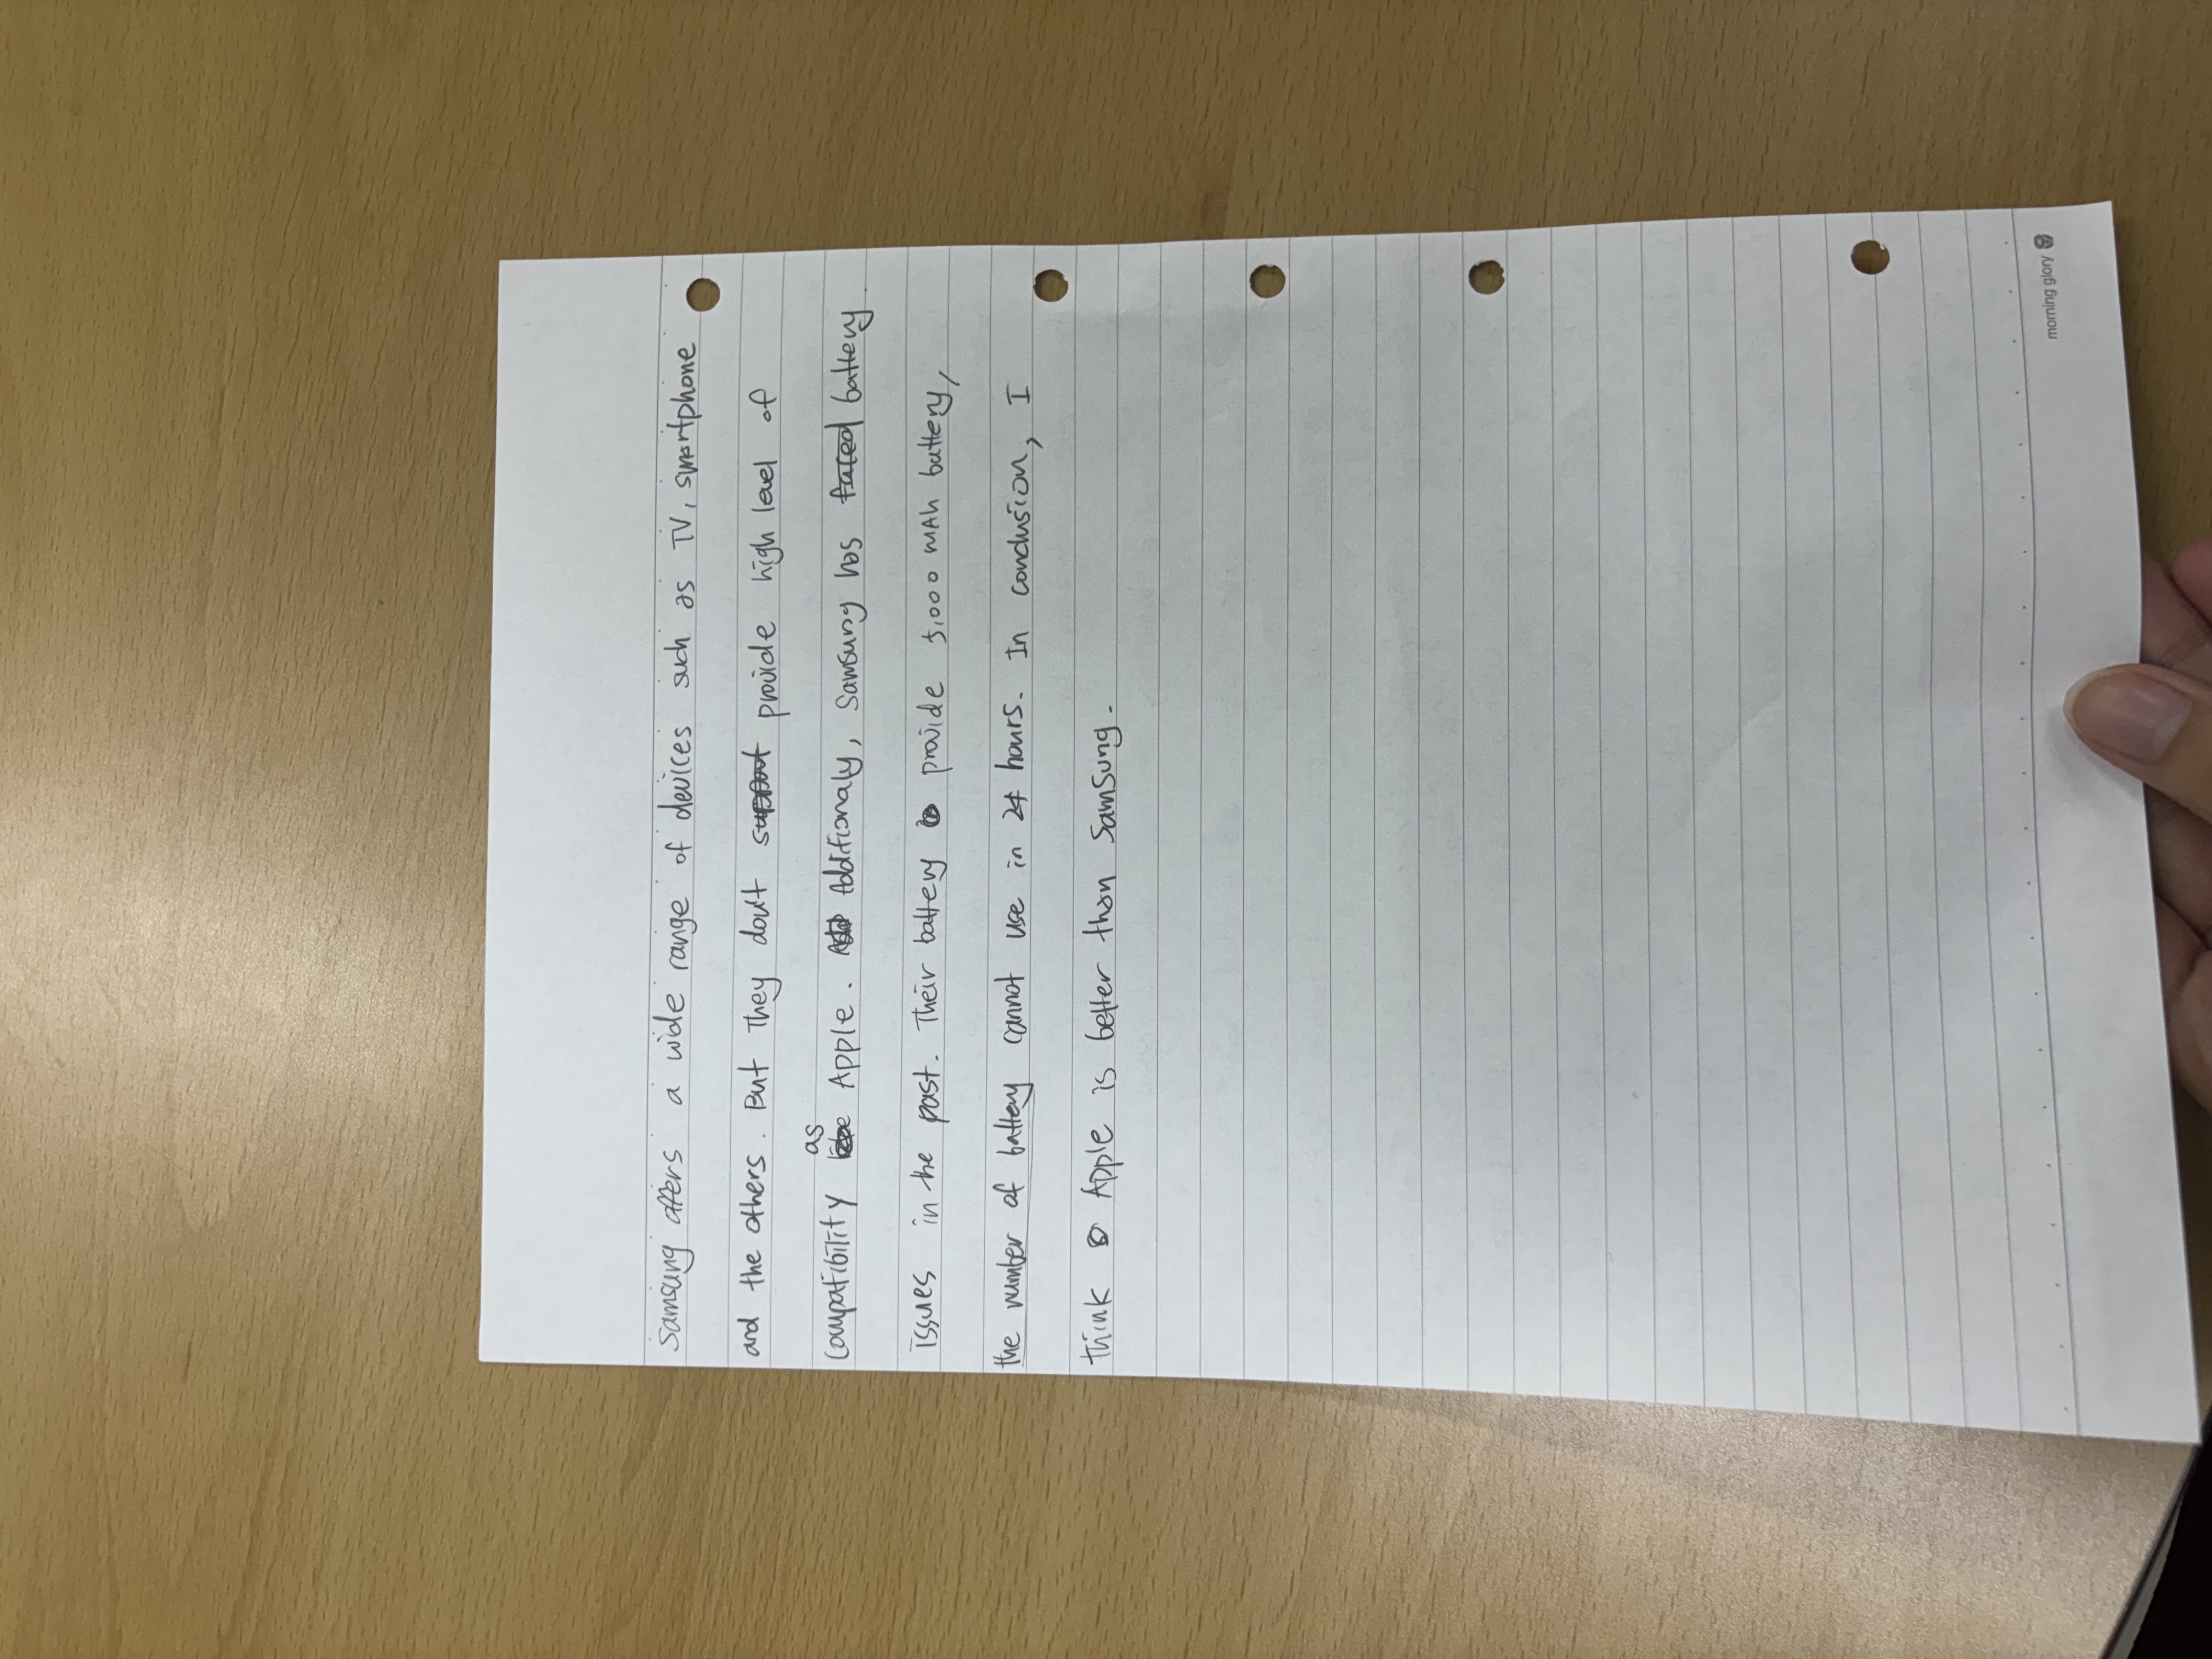 Samsung offers a wide range of devices such as TV, smartphone
and the others. But They don't support provide high level of
as
compatibility like Apple. Add Additionaly, Samsung has faced battery
issues in the past. Their battery provide 5,000 mAh battery,
the number of battery cannot use in 24 hours. In conclusion, I
think Apple is better than Samsung.
morning glory